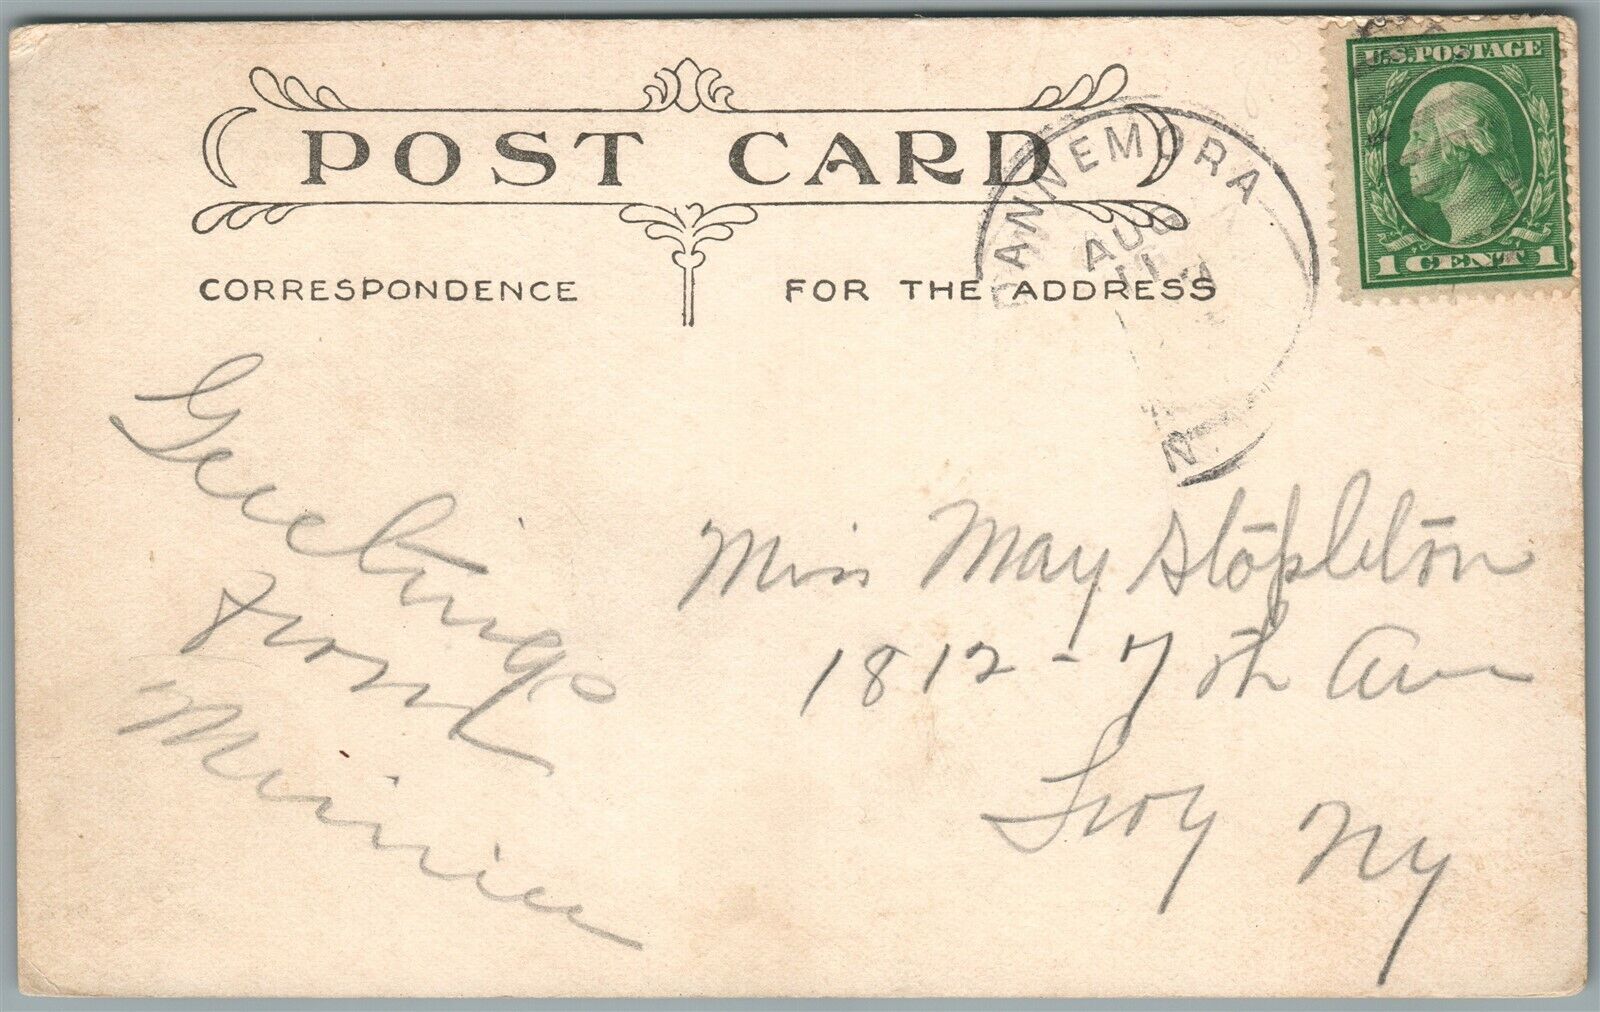 POST CARD
CORRESPONDENCE
FOR THE ADDRESS
DANNEMORA
AUG
11
N.
U.S. POSTAGE
1 CENT 1
Greetings
from
Minnie
Miss May Stapleton
1812 - 7th Ave
Troy NY